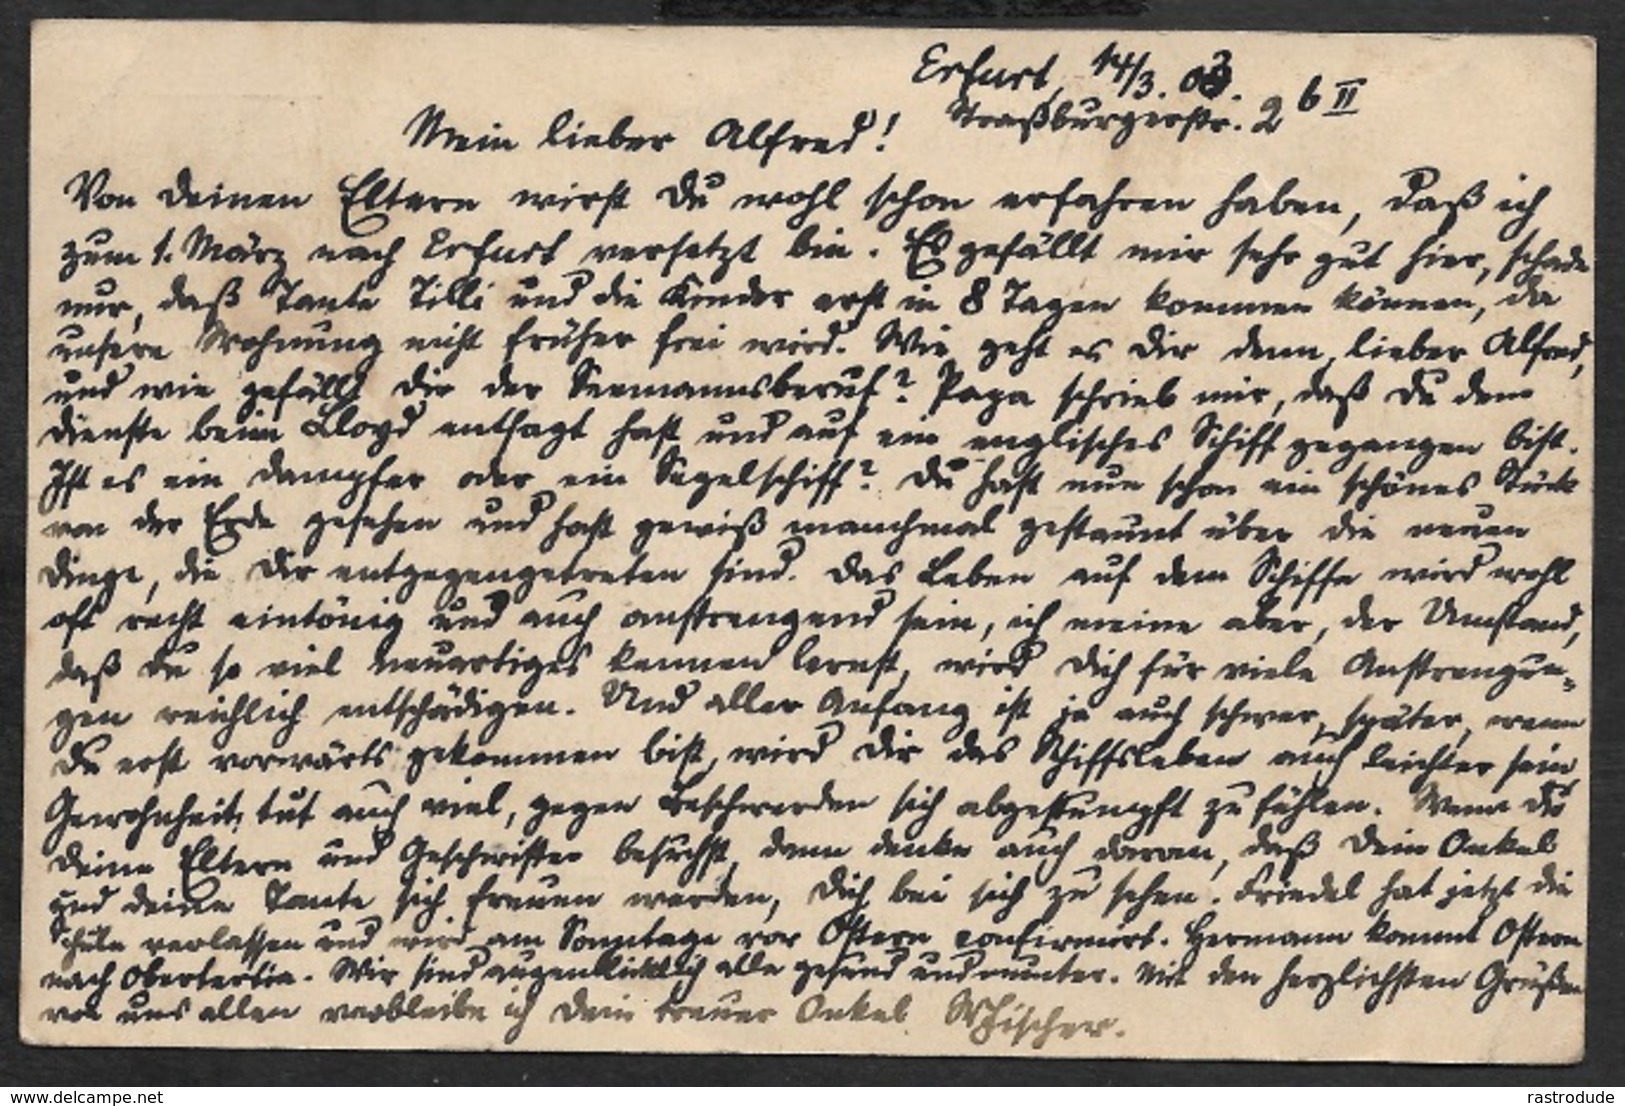 Erfurt, 14/3. 03.
Straßburgerstr. 26 II
Mein lieber Alfred!
Von Deinen Eltern wirst Du wohl schon erfahren haben, daß ich
zum 1. März nach Erfurt versetzt bin. Es gefällt mir sehr gut hier, schade
nur, daß Tante Tilli und die Kinder erst in 8 Tagen kommen können, da
unsere Wohnung nicht früher frei wird. Wie geht es Dir denn, lieber Alfred,
und wie gefällt Dir der Seemannsberuf? Papa schrieb mir, daß Du dem
Dienste beim Lloyd entsagt hast und auf ein englisches Schiff gegangen bist.
Ist es ein Dampfer oder ein Segelschiff? Du hast nun schon ein schönes Stück
von der Erde gesehen und hast gewiß manchmal gestaunt über die neuen
Dinge, die Dir entgegengetreten sind. Das Leben auf dem Schiffe wird wohl
oft recht eintönig und auch anstrengend sein, ich meine aber, der Umstand,
daß Du so viel neuartiges kennen lernst, wird Dich für viele Anstrengun-
gen reichlich entschädigen. Und aller Anfang ist ja auch schwer, später, wenn
Du erst vorwärts gekommen bist, wird Dir das Schiffsleben auch leichter sein,
Gewohnheit tut auch viel, gegen Beschwerden sich abgestumpft zu fühlen. Wenn Du
Deine Eltern und Geschwister besuchst, dann denke auch daran, daß Dein Onkel
und Deine Tante sich freuen werden, Dich bei sich zu sehen. Friedel hat jetzt die
Schule verlassen und wird am Sonntage vor Ostern confirmirt. Hermann kommt Ostern
nach Obertertia. Wir sind augenblicklich alle gesund und munter. Mit den herzlichsten Grüßen
von uns allen verbleibe ich Dein treuer Onkel WFischer.
rastrodude
https://www.delcampe.net